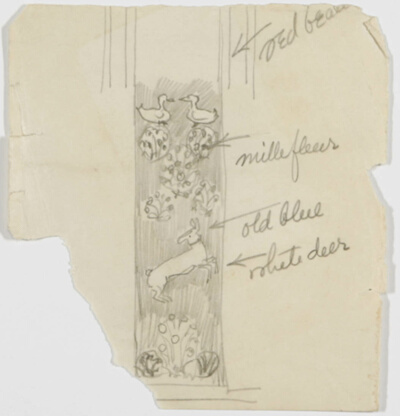 red
millefleur
old blue
white deer